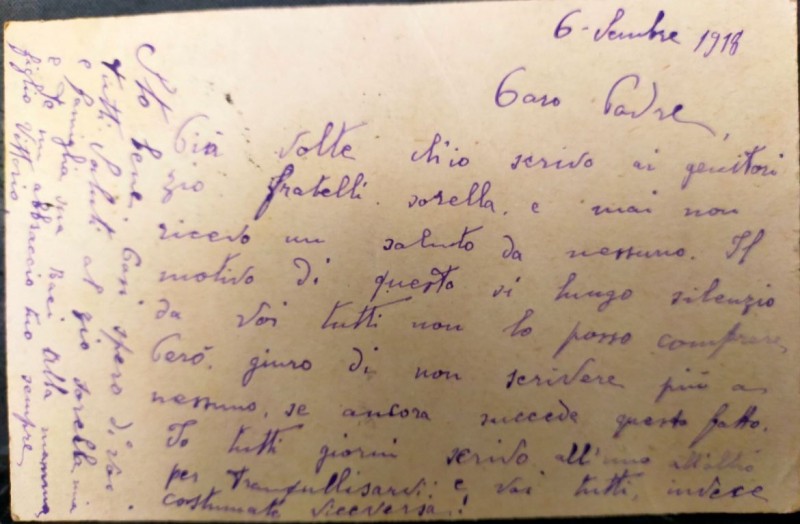 6 - Sembre 1918
Caro Padre,
Già volte ch'io scrivo ai genitori
zio fratelli. sorella. e mai non
ricevo un saluto da nessuno. Il
motivo di questo si lungo silenzio
da voi tutti non lo posso comprere
Però. giuro di non scrivere più a
nessuno, se ancora succede questo fatto.
Io tutti giorni scrivo all'uno all'altro
per tranqullisarvi: e voi tutti, invece
costumate viceversa.!
Sto bene. Così spero di voi
tutti. Saluti al zio sorella mia
e famiglia sua Baci alla mamma
e te un abbraccio tuo sempre
figlio Vittorio